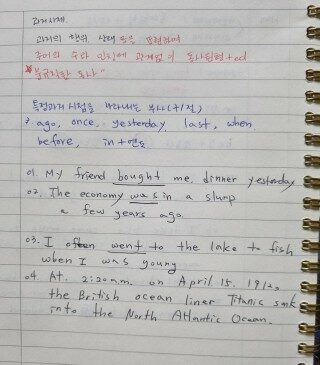 과거시제
과거의 행위, 상태 등을 표현하며
주어의 수와 인칭에 관계없이 동사원형+ed
*불규칙한 동사"
특정과거시점을 나타내는 부사(구/절)
? ago, once, yesterday, last, when
before, in+연도
01. My friend bought me dinner yesterday
02. The economy was in a slump
a few years ago.
03. I often went to the lake to fish
when I was young
04. At 2:20a.m. on April 15. 1912,
the British ocean liner Titanic sank
into the North Atlantic Ocean.